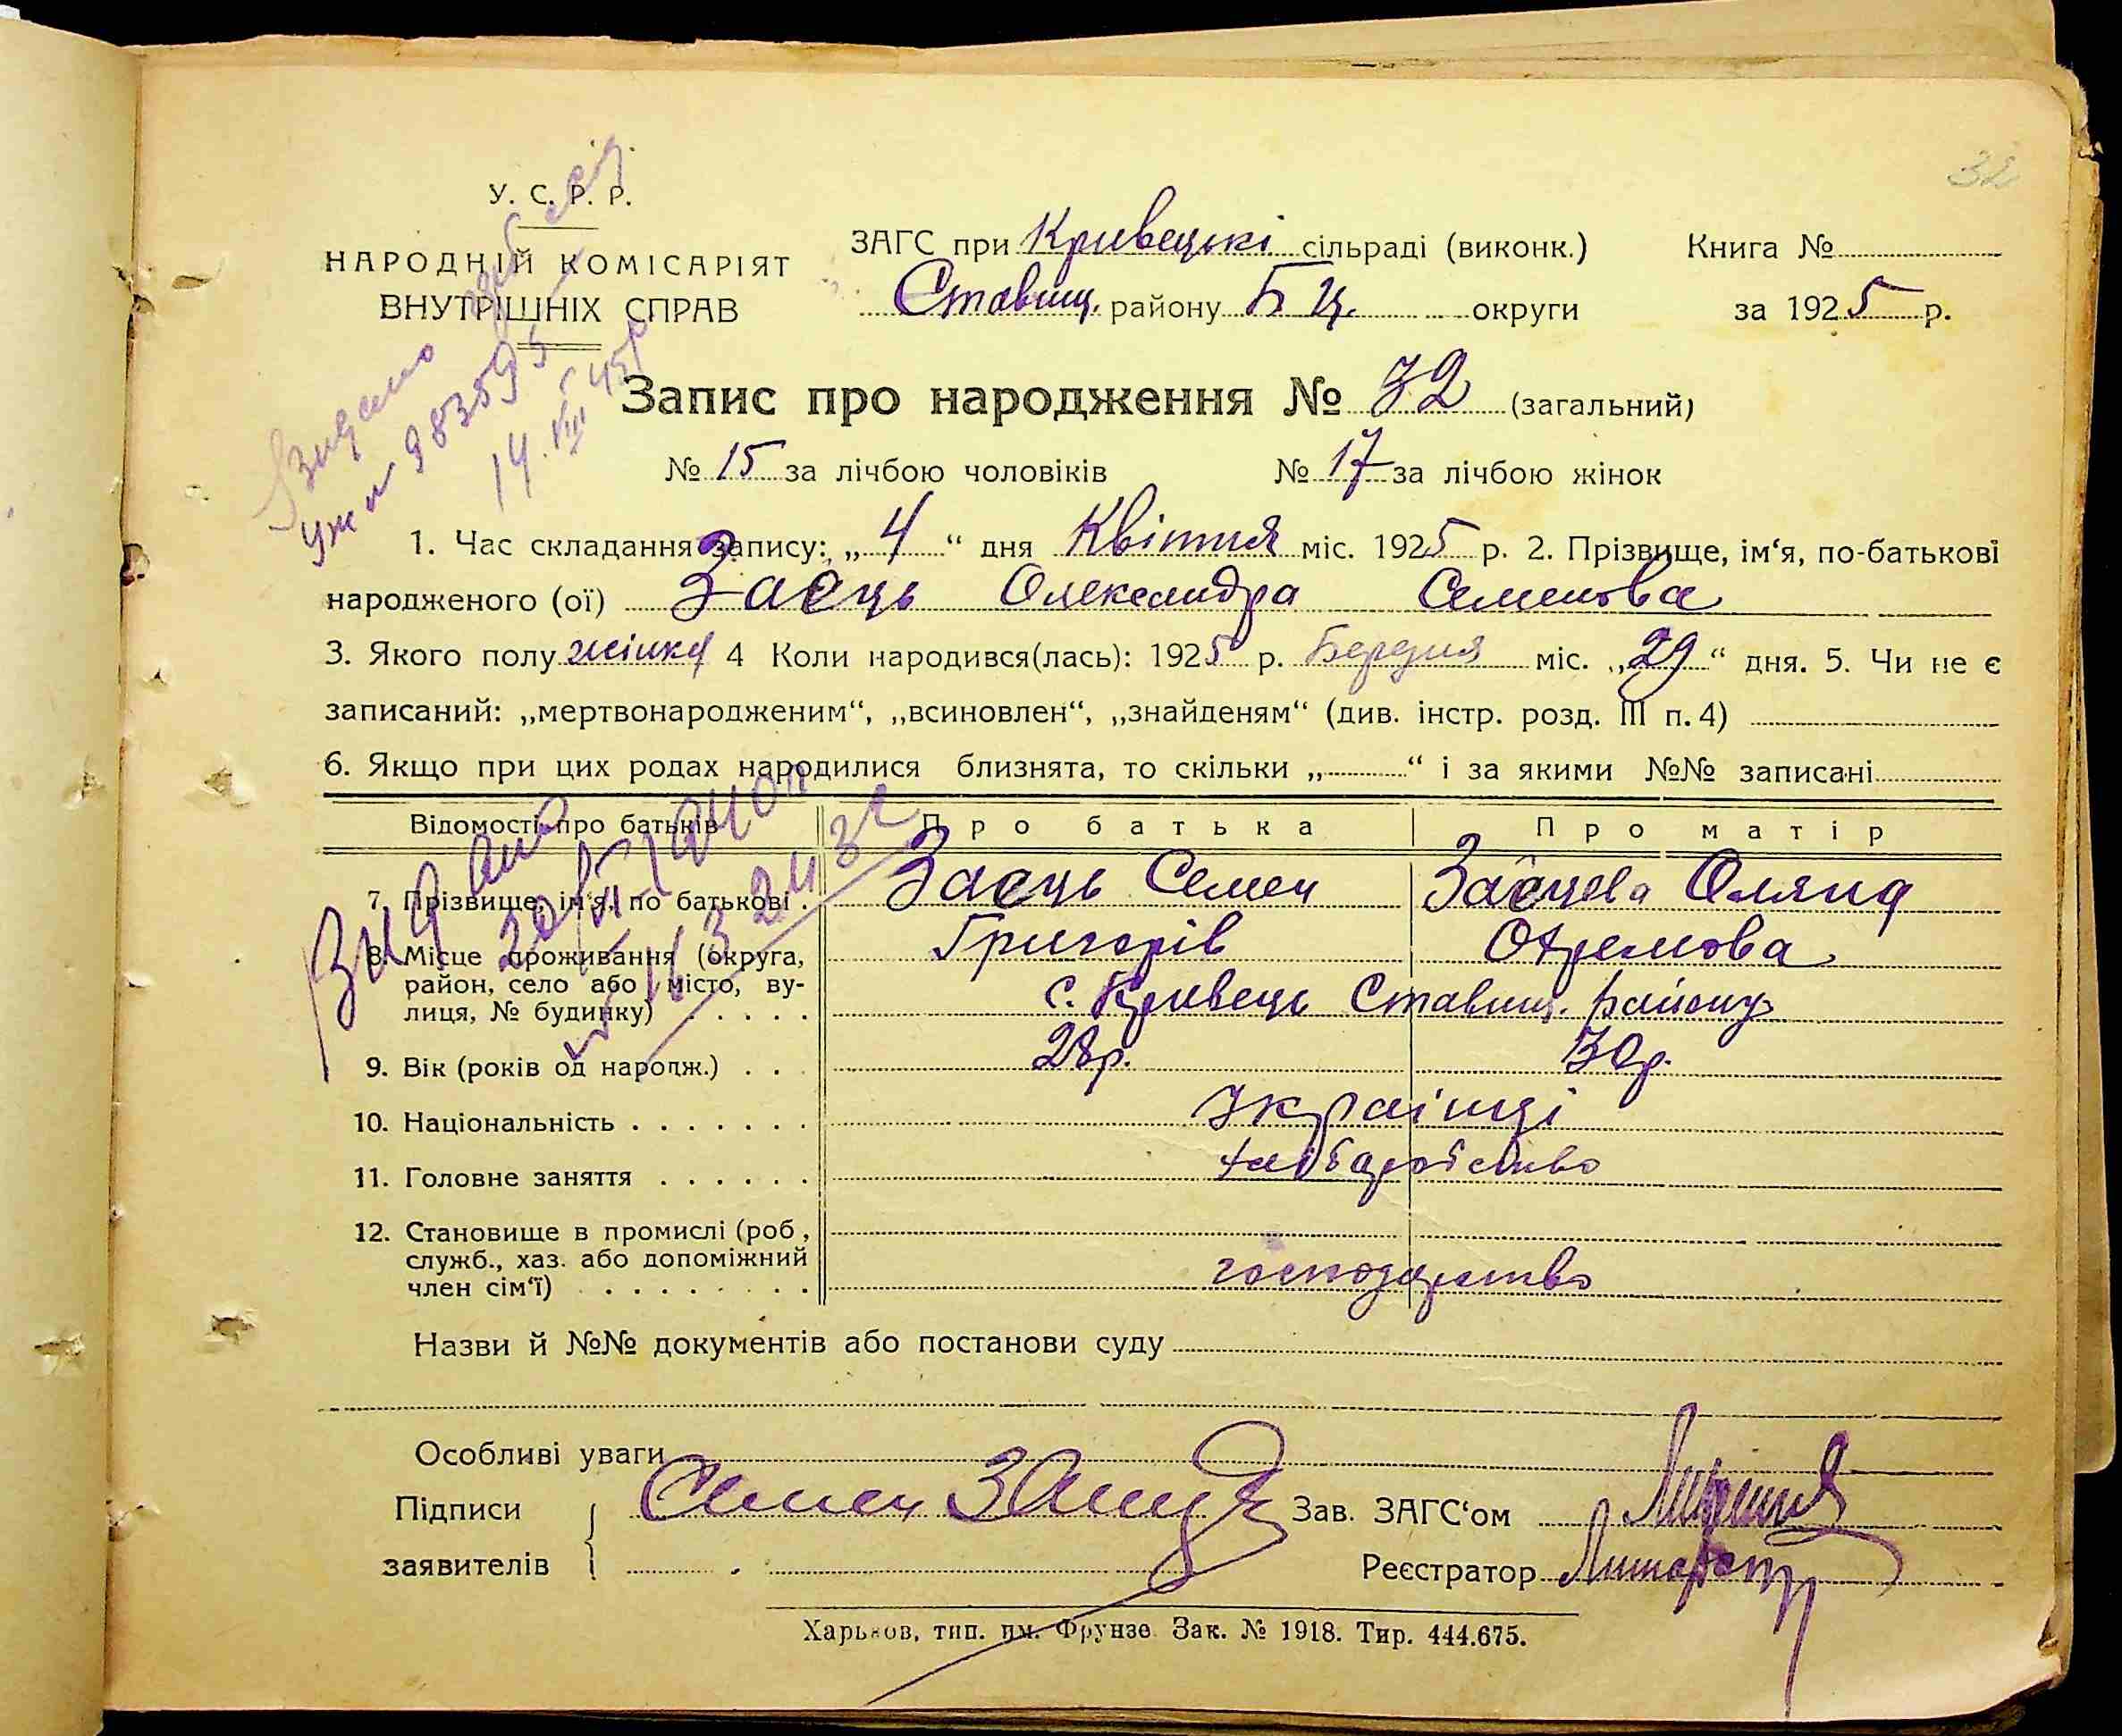 32
У. С. Р. Р.
НАРОДНІЙ КОМІСАРІЯТ
ВНУТРІШНІХ СПРАВ
ЗАГС при Кривецькі сільраді (виконк.) Книга №
Ставищ. району Б Ц. округи за 1925 р.
Запис про народження № 32 (загальний)
№ 15 за лічбою чоловіків № 17 за лічбою жінок
1. Час складання запису: „4“ дня Квітня міс. 1925 р. 2. Прізвище, ім‘я, по-батькові
народженого (ої) Заєць Олександра Семенова
3. Якого полу жінку 4 Коли народився(лась): 1925 р. Березня міс. „29“ дня. 5. Чи не є
записаний: „мертвонародженим“, „всиновлен“, „знайденям“ (див. інстр. розд. III п. 4)
6. Якщо при цих родах народилися близнята, то скільки „ “ і за якими №№ записані
Відомості про батьків Про батька Про матір
7. Прізвище, ім‘я, по батькові . Заєць Семен Заєцева Оляна
Григорів
8. Місце проживання (округа,
район, село або місто, ву-
лиця, № будинку) . . . . . с. Кривець Ставищ. району
9. Вік (років од народж.) . . . 28р. 30р.
10. Національність . . . . . . . Українці
11. Головне заняття . . . . . .
12. Становище в промислі (роб.,
служб., хаз. або допоміжний
член сім‘ї) . . . . . . . . господарство
Назви й №№ документів або постанови суду
Особливі уваги
Підписи Семен Заяць Зав. ЗАГС‘ом
заявителів Реєстратор
Харьков, тип. им. Фрунзе Зак. № 1918. Тир. 444.675.
Видано
983595
14.VIII 45р
Видано